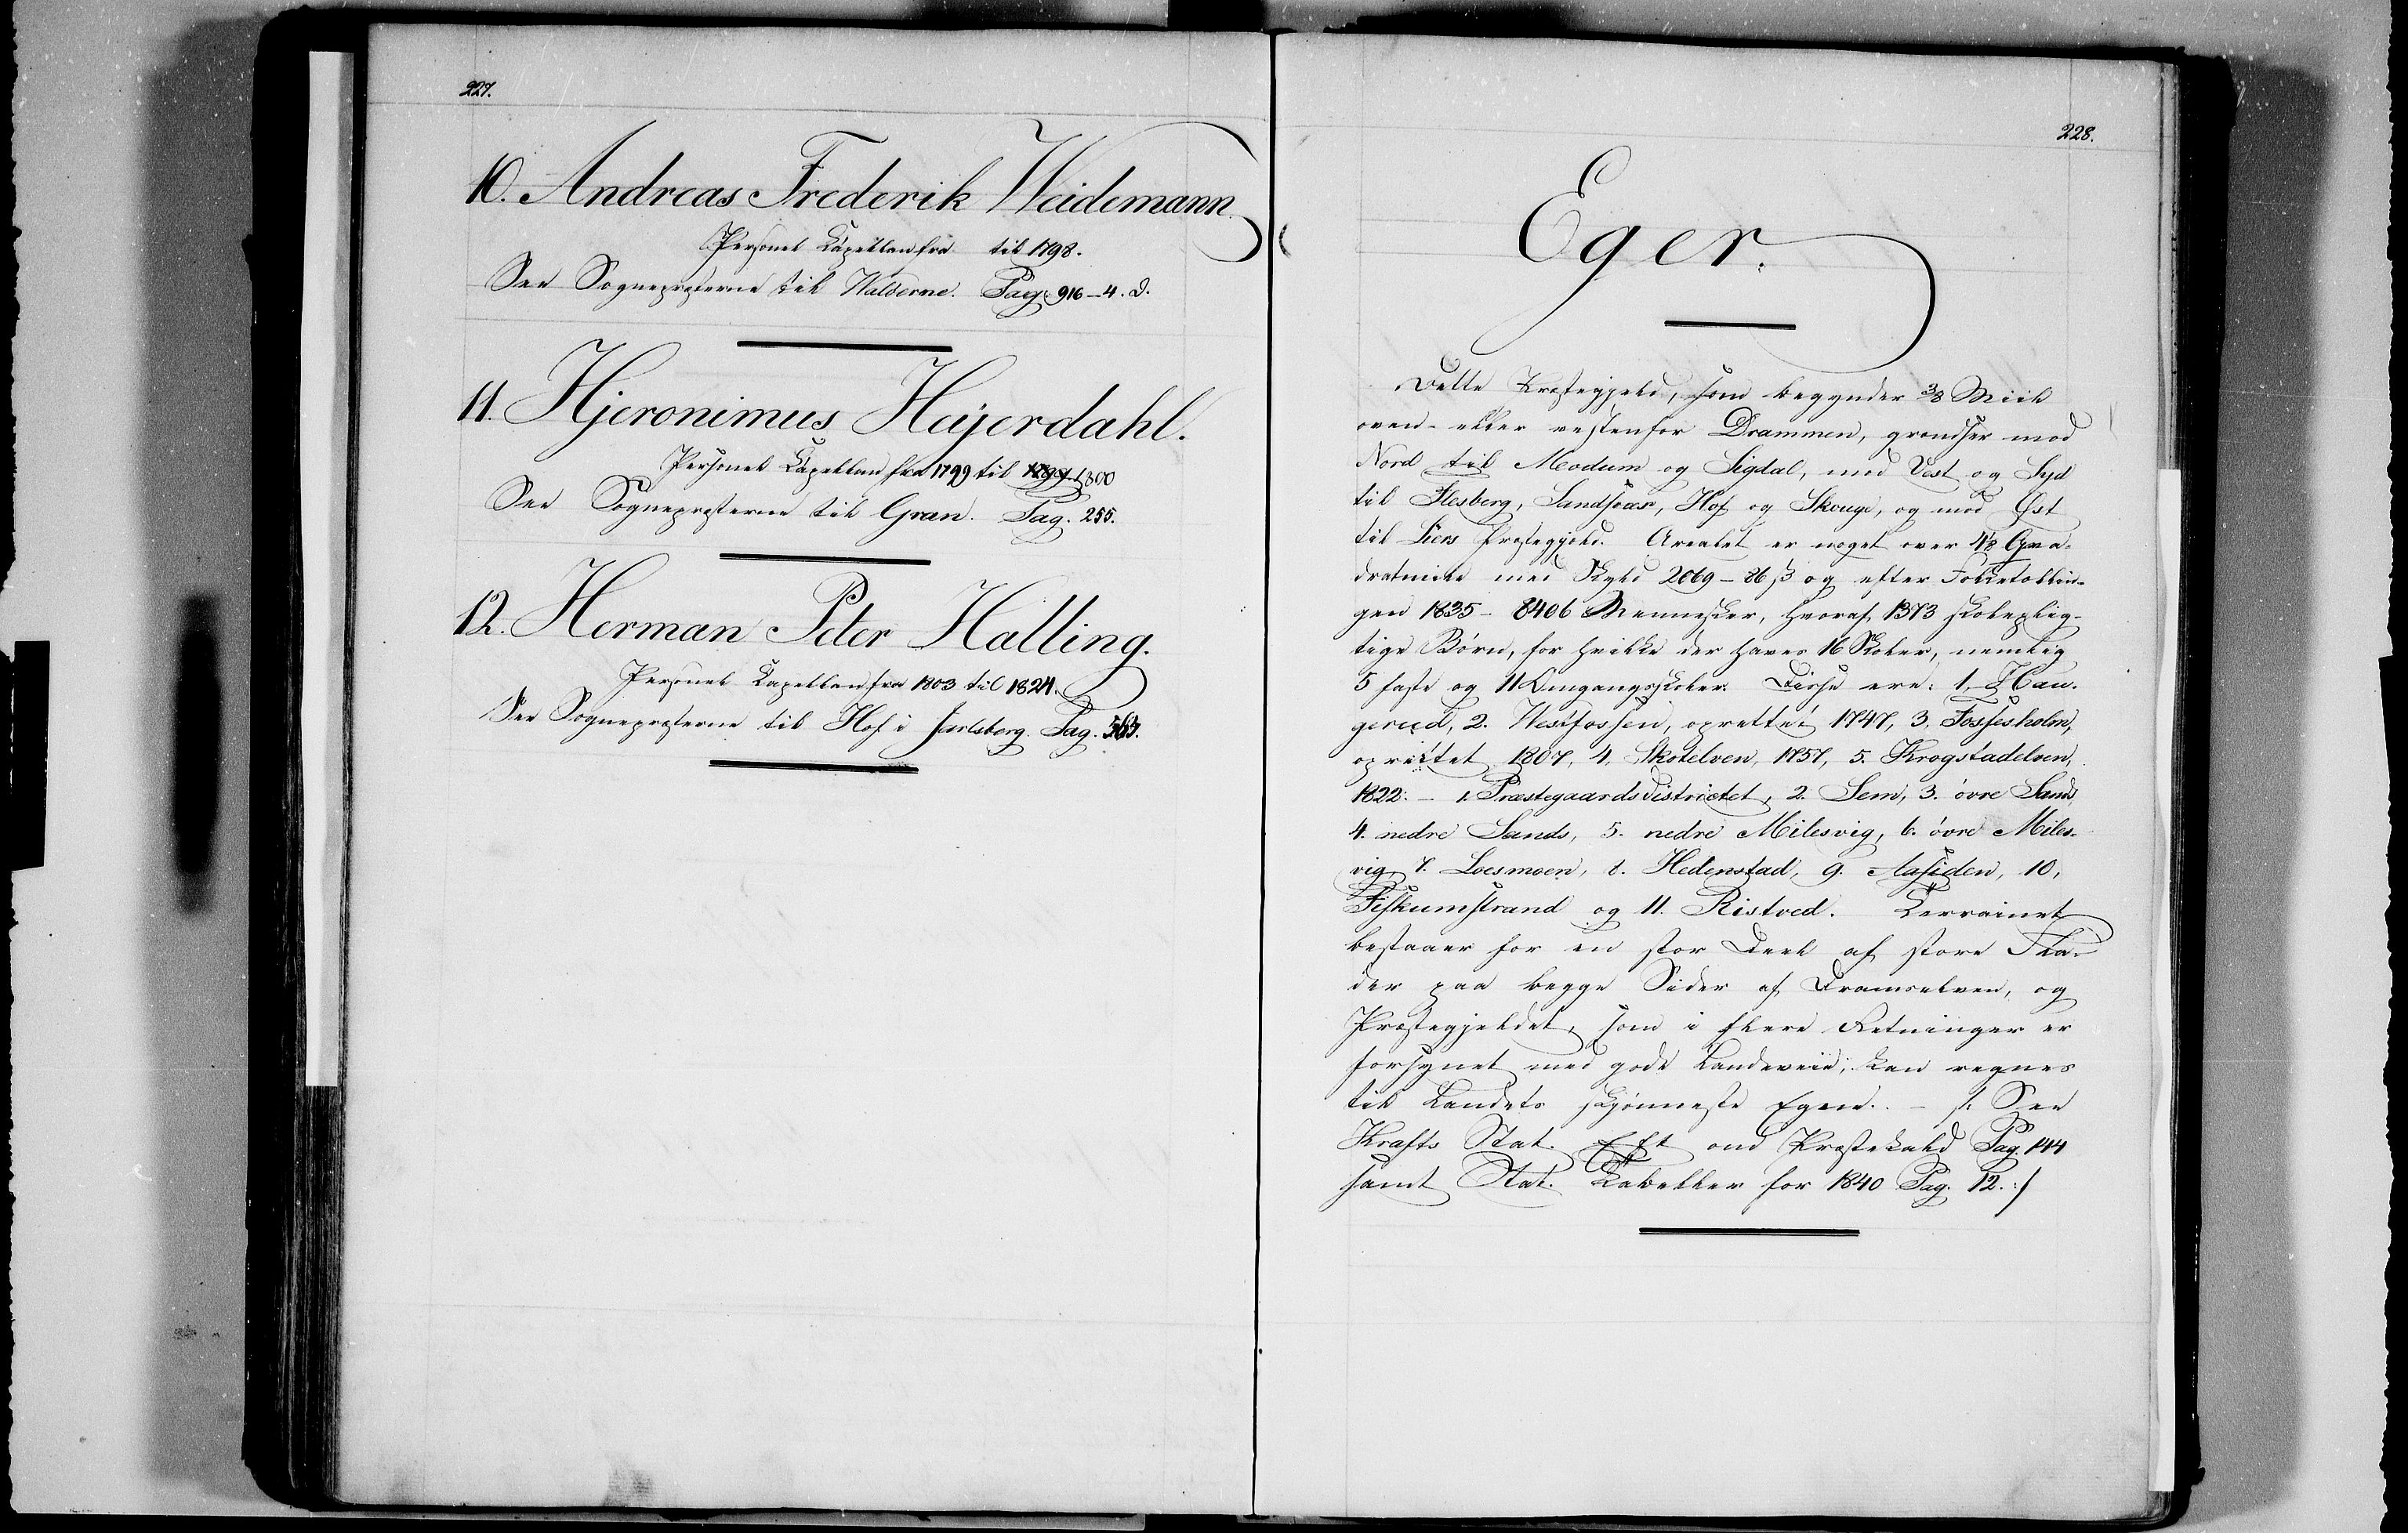 227.
10. Andreas Frederik Weidemann.
Personel Capellan fra til 1798.
See Sognepresterne til Walderne. Pag. 916–4. d.
11. Hjeronimus Heijerdahl.
Personel Capellan fra 1799 til 1799. 1800
See Sognepresterne til Gran. Pag. 255.
12. Herman Peter Halling.
Personel Capellan fra 1803 til 1824.
See Sognepresterne til Hof i Jarlsberg. Pag. 563.
228.
Eger.
Dette Præstegjeld, som begynder 3/8 Miil
oven- eller vestenfor Drammen, grændser mod
Nord til Modum og Sigdal, mod Vest og Syd
til Flesberg, Sandsvær, Hof og Skouge, og mod Øst
til Liers Præstegjeld. Arealet er noget over Qva-
dratmiil med Skyld 2069 – 86 ß og efter Folketællin-
gen 1835 – 8406 Mennesker, hvoraf 1373 skolepligtige-
tige Børn, for hvilke der haves 16 Skoler, nemlig
5 faste og 11 Omgangsskoler. Disse ere: 1. Hau-
gerud, 2. Westfossen, oprettet 1747, 3. Fossesholm,
oprettet 1807, 4. Skotselven, 1757, 5. Krogstadelven,
1822: – 1. Præstegaardsdistrictet, 2. Sem, 3. øvre Sands,
4. nedre Sands, 5. nedre Milesvig, 6. øvre Miles-
vig, 7. Loesmoen, 8. Hedenstad, 9. Aasiden, 10,
Fiskumstrand og 11. Ristved. Terrainet
bestaaer for en stor Deel af store Fla-
der paa begge Sider af Dramselven, og
Præstegjeldet, som i flere Retninger er
forsynet med gode Landeveie, kan regnes
til Landets skjønneste Egne. – /: See
Krafts Stat. Eft ond Præstekald Pag. 144
samt Stat. Tabeller for 1840 Pag. 12. :/